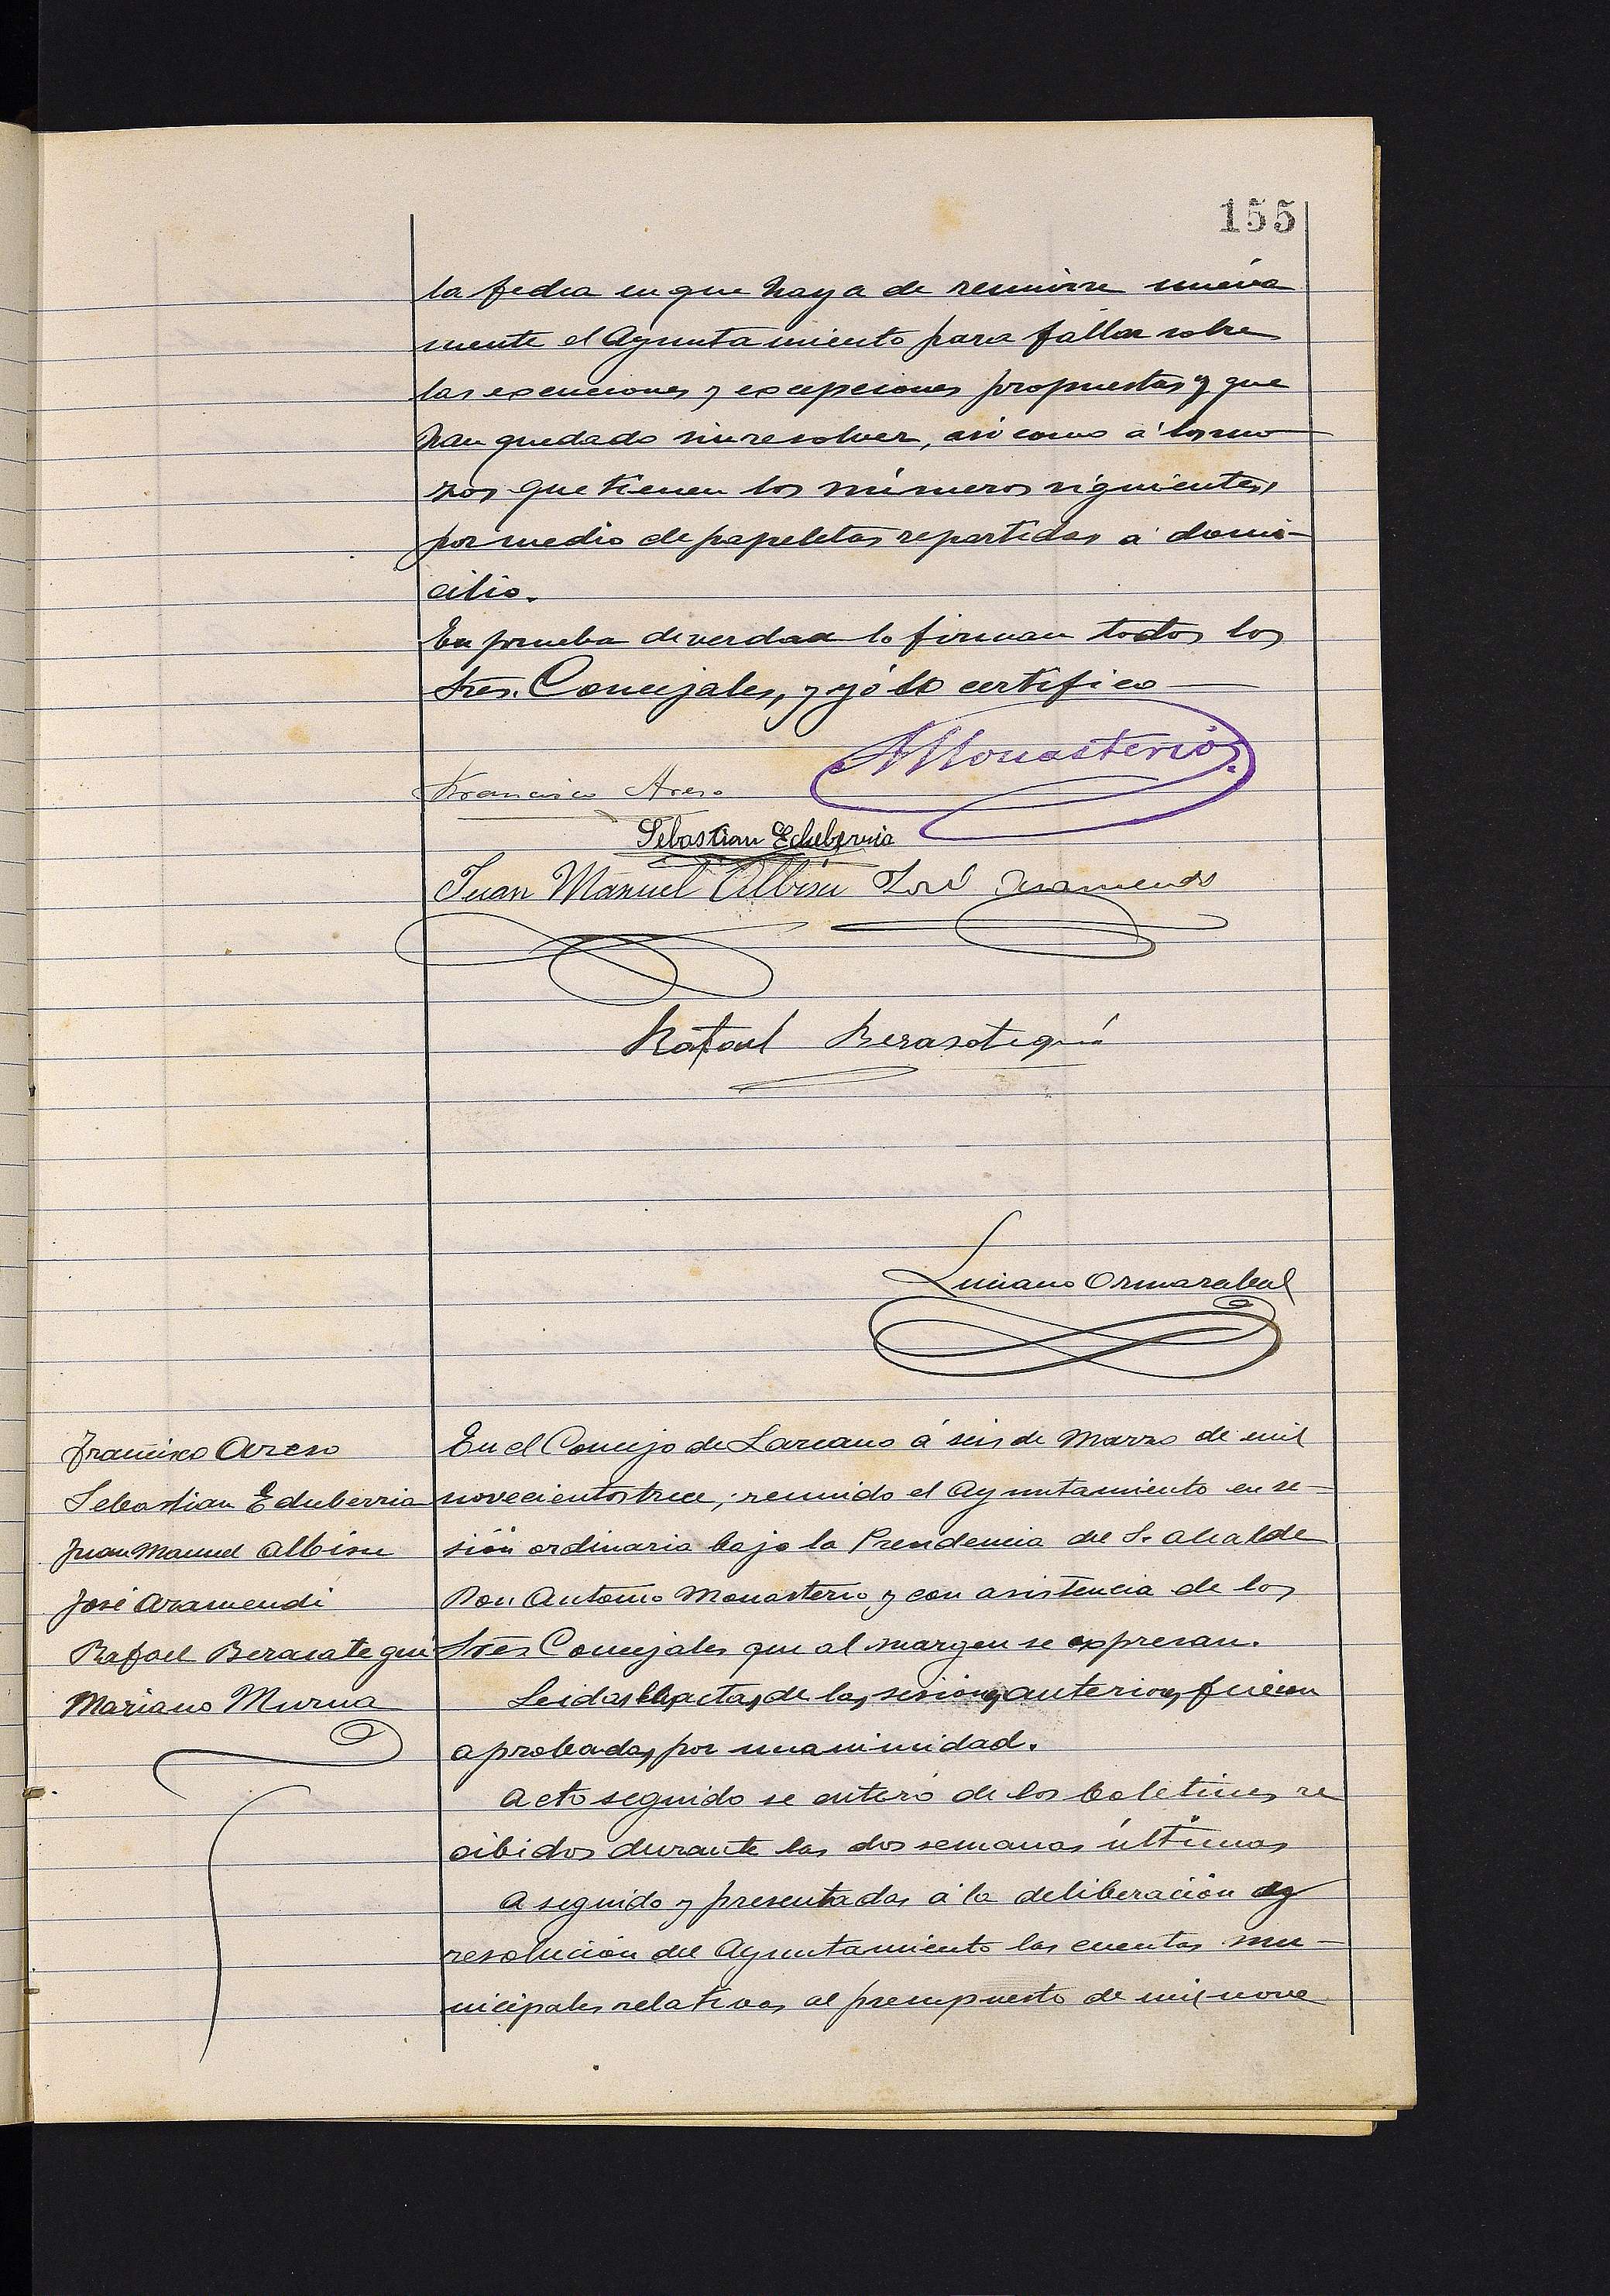 155
la fecha en que haya de reunirse nueva
mente el Ayuntamiento para fallar sobre
las exenciones y excepciones propuestas y que
han quedado sin resolver, asi como á los mo
zos que tienen los números siguientes,
por medio de papeletas repartidas á domi-
cilio.
En prueba de verdad lo firman todos los
Sres. Concejales, y yó lo certifico
A Monasterio
Francisco Areso
Sebastian Echeberria
Juan Manuel Albisu José Aramendi
Rafael Berasategui
Luciano Ormazabal
Francisco Areso
Sebastian Echeberria
Juan Manuel Albisu
José Aramendi
Rafael Berasategui
Mariano Murua
En el Concejo de Lazcano á seis de Marzo de mil
novecientos trece, reunido el Ayuntamiento en se-
sión ordinaria bajo la Presidencia del Sr. Alcalde
Don Antonio Monasterio y con asistencia de los
Sres Concejales que al margen se expresan.
Leidas las actas de las sesiones anteriores fueron
aprobadas por unanimidad.
Acto seguido se enteró de los boletines re
cibidos durante las dos semanas últimas
A seguido y presentadas á la deliberación y
resolución del Ayuntamiento las cuentas mu-
nicipales relativas al presupuesto de mil nove